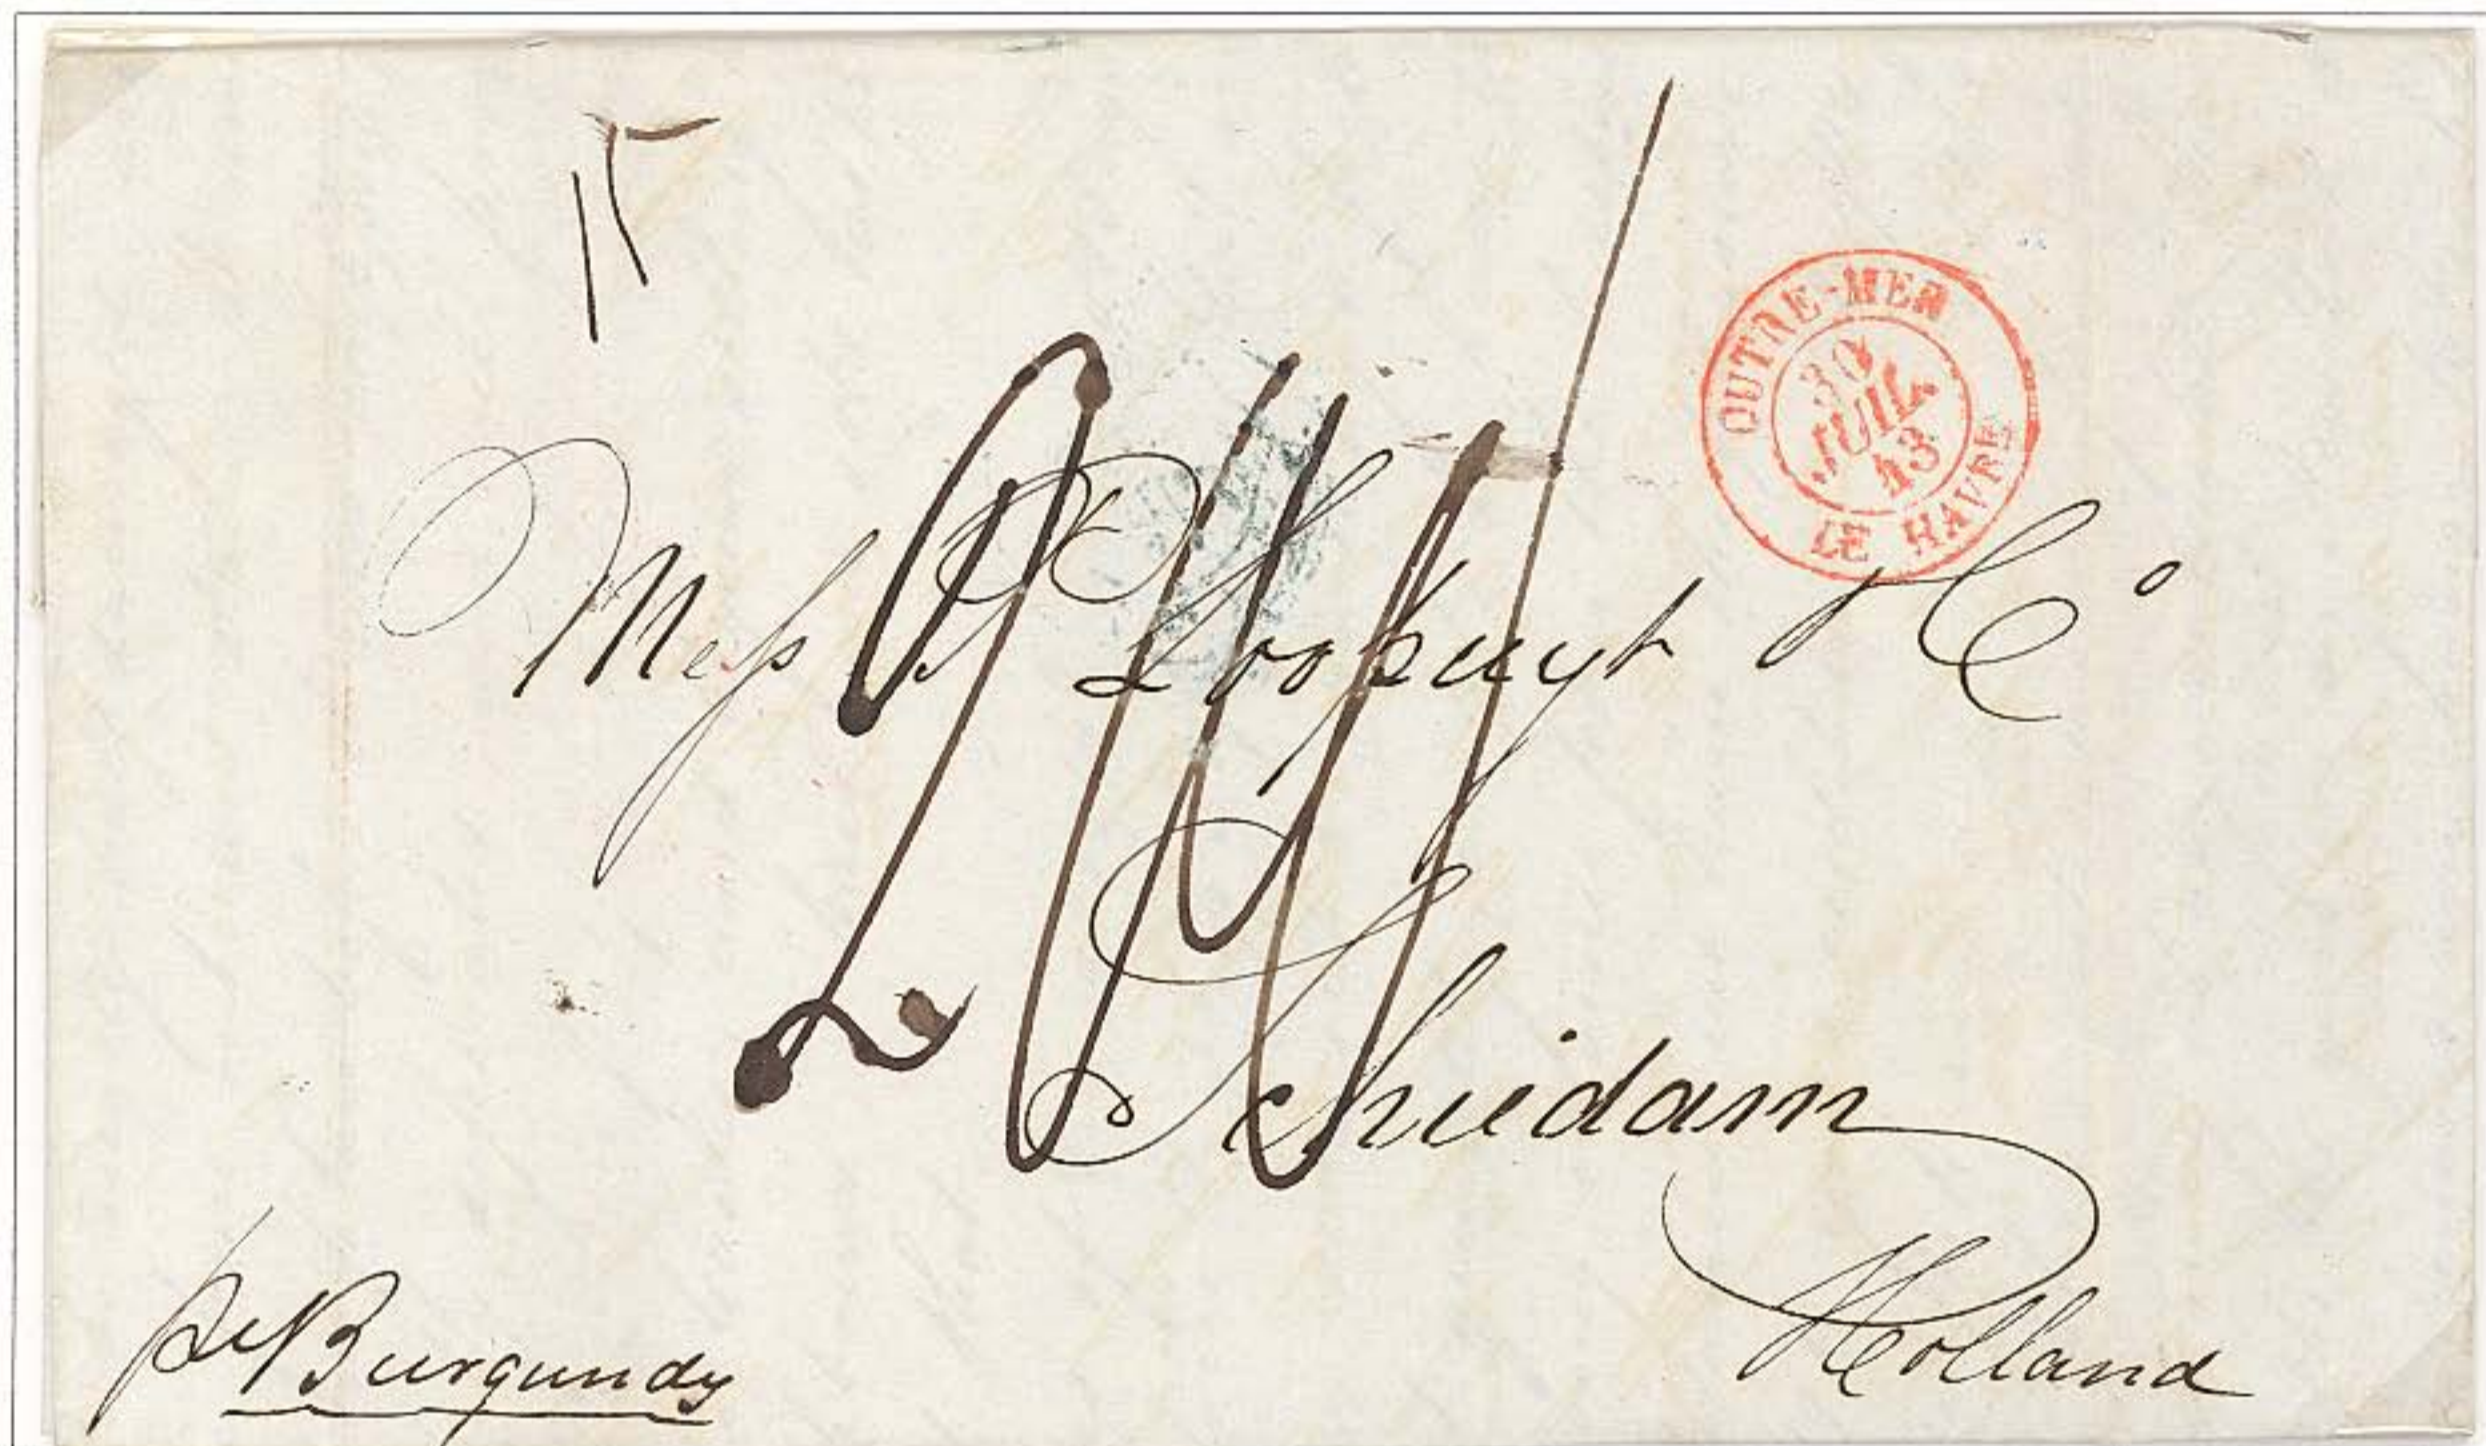 15
OUTRE-MER
30
JUIL.
43
LE HAVRE
Mess P. Loopuyt & Co
Schiedam
Holland
per Burgundy